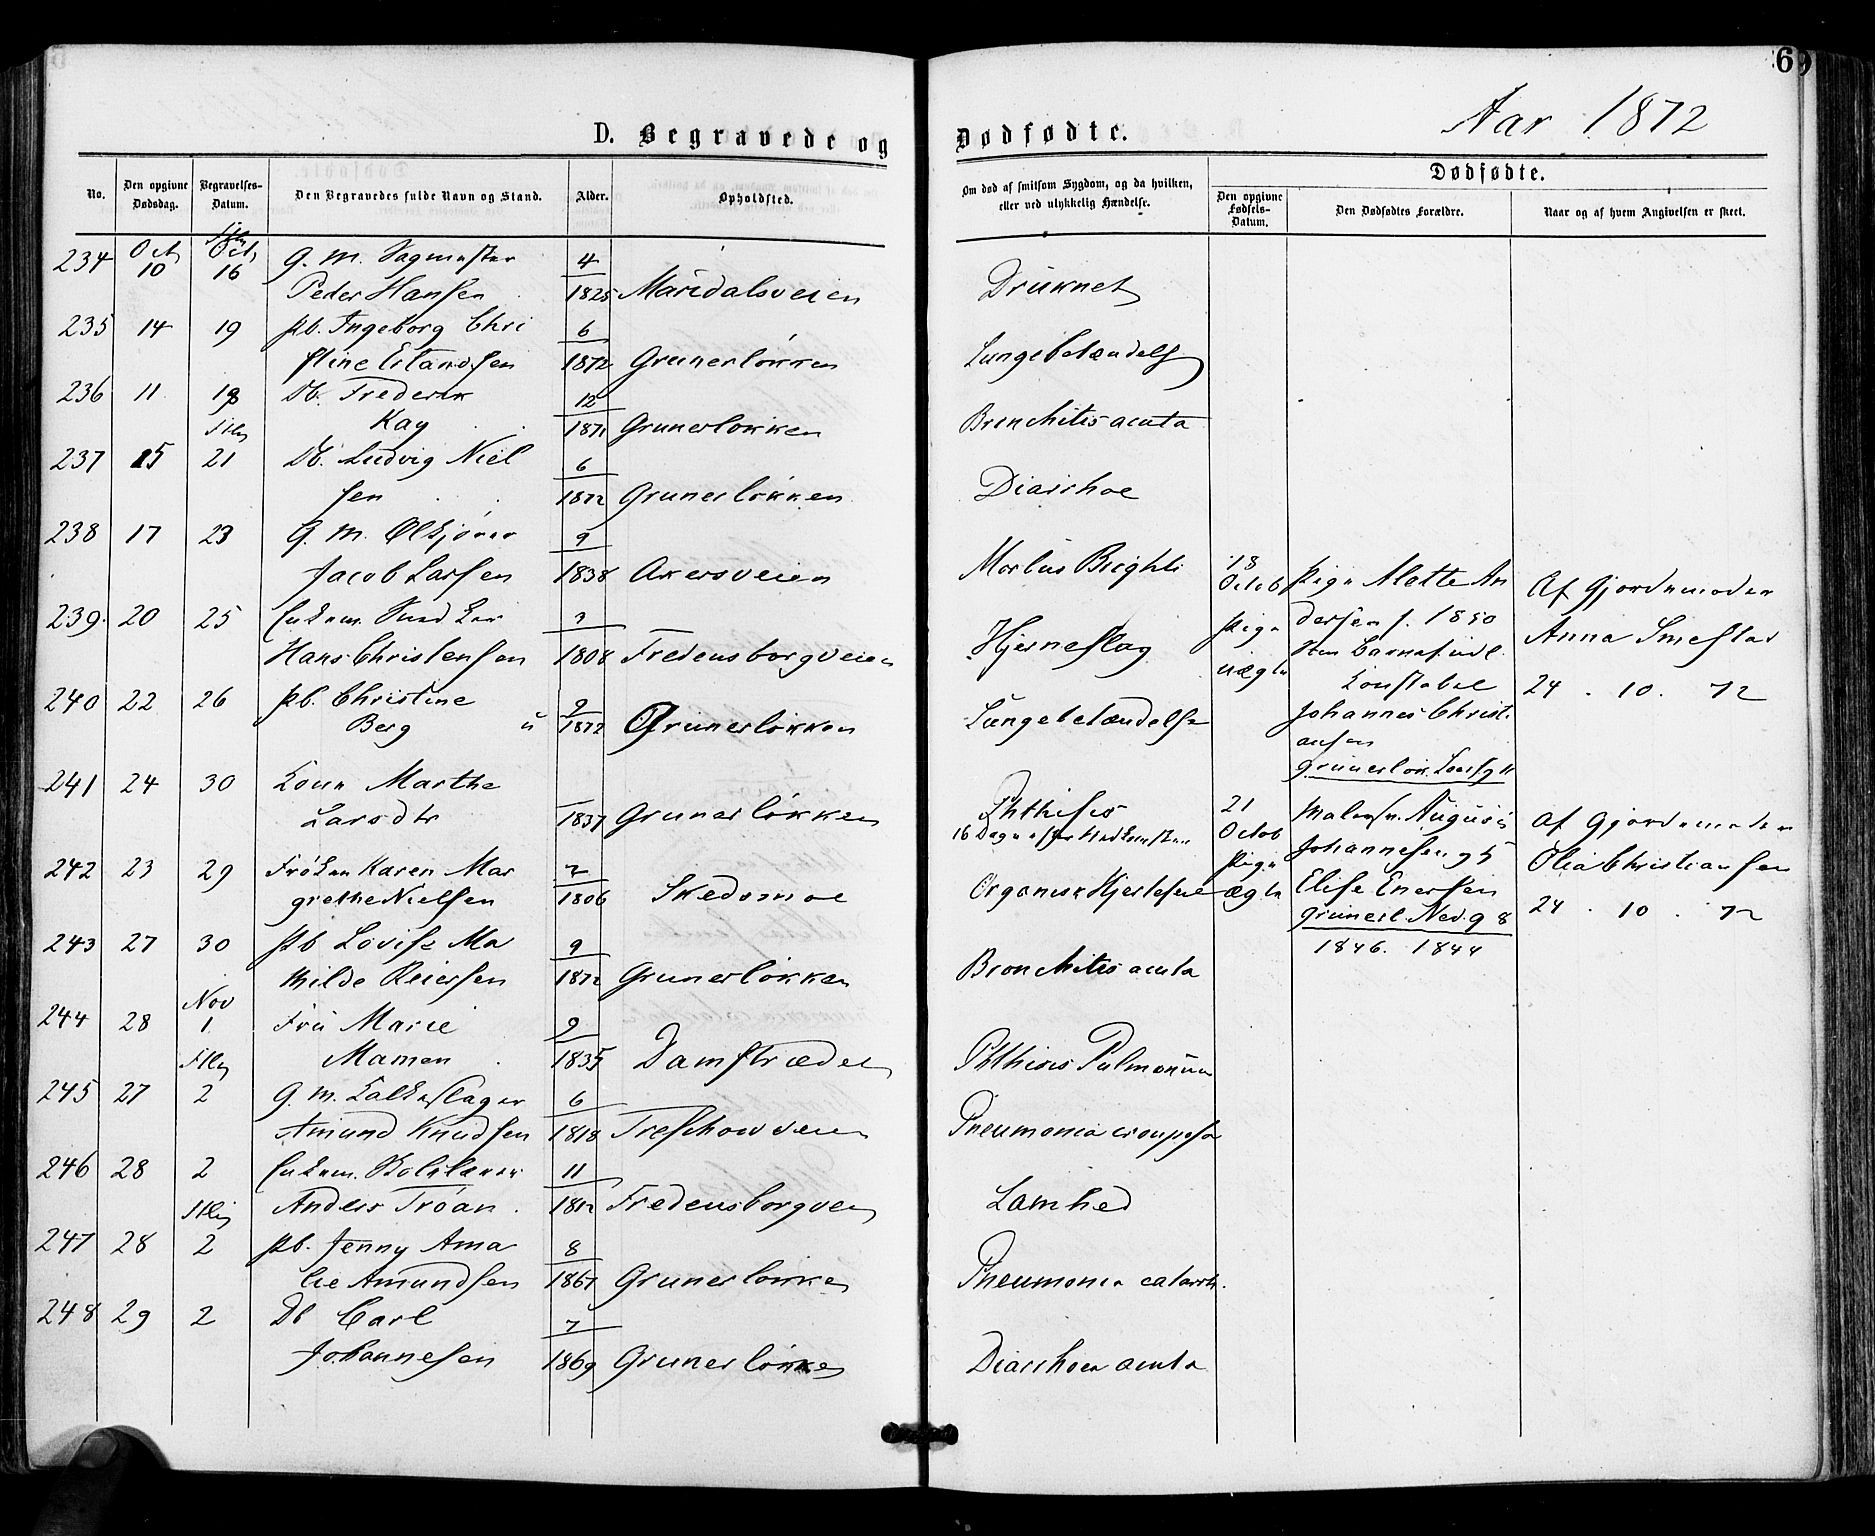 69
Aar 1872
D. Begravede og Dødfødte.
No.
Den opgivne Dødsdag.
Begravelses-Datum.
Den Begravedes fulde Navn og Stand.
Alder.
Opholdsted.
Om død af smitsom Sygdom, og da hvilken, eller ved ulykkelig Hændelse.
Dødfødte.
Den opgivne Fødsels-Datum.
Den Dødfødtes Forældre.
Naar og af hvem Angivelsen er skeet.
234 Oct 10 Oct 16 G. M. Sagmester 4
Peder Hansen 1825 Maridalsveien Druknet
235 14 19 pb. Ingeborg Chri 6
stine Erlandsen 1872 Grunerløkken Lungebetændelse
236 11 19 Db. Frederik 12
Kay 1871 Grunerløkken Bronchitis acuta
237 15 21 Db. Ludvig Niel 6
sen 1872 Grunerløkken Diarrhoe
238 17 23 G. M. Ølkjører 9
Jacob Larsen 1838 Akersveien Morbus Brightii
239 20 25 Enkem. Snedker
Hans Christensen 1808 Fredensborgveien Hjerneslag
240 22 26 pb. Christine 9
Berg u 1872 Grunerløkken Lungebetændelse
241 24 30 Kone Marthe
Larsdtr 1837 Grunerløkken Phthisis
16 Dage efter Nedkomsten
242 23 29 Frøken Karen Mar 2
grethe Nielsen 1806 Skedsmoe Organisk Hjertefeil
243 27 30 pb Lovise Ma 9
thilde Reiersen 1872 Grunerløkken Bronchitis acuta
244 28 Nov 1 Fru Marie 9
Mamen 1835 Damstrædet Phthisis Pulmonum
245 27 2 G. M. Kalkslager 6
Amund Knudsen 1818 Treschowveien Pneumonia crouposa
246 28 2 Enkem.
Anders Trøan 1812 Fredensborgvei Lamhed
247 28 2 pb. Jenny Ama 8
lie Amundsen 1867 Grunerløkke Pneumonia catarrh.
248 29 2 Db Carl 7
Johannesen 1869 Grunerløkken Diarrhoea acuta
18
Octob
pige
uægte
pige Mette An
dersen f. 1850
Konstabel
Johannes Christi
ansen
Af Gjordemoder
Anna Smestad
24 . 10. 72
21
Octob
pige
ægte
Malersv. August
Johannesen g 5
Elise Enersen
Grunerl. Nedg 8
1846. 1844
Af Gjordemoder
Olia Christiansen
24 . 10 . 72